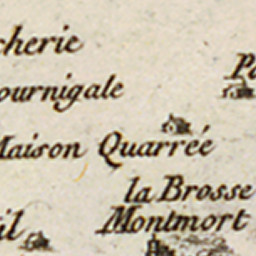 cherie
Pa
ournigale
Maison Quarréé
la Brosse
Montmort
il